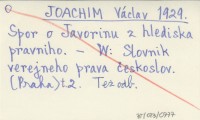 JOACHIM Václav 1929.
Spor o Javorinu z hlediska
pravniho. - W: Slovnik
verejneho prava českoslov.
(Praha) t.2. Tezodb.